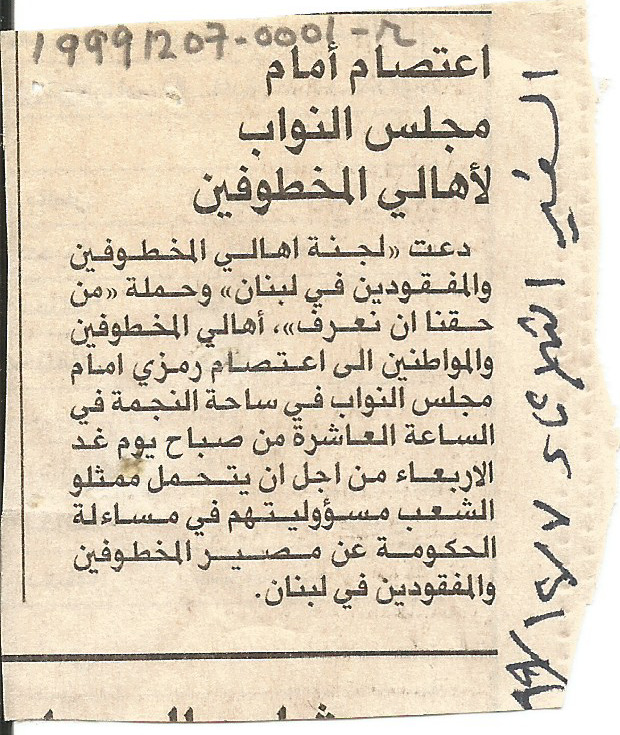 19991207-0001-R
اعتصام أمام
مجلس النواب
لأهالي المخطوفين
دعت «لجنة اهالي المخطوفين
والمفقودين في لبنان» وحملة «من
حقنا ان نعرف»، أهالي المخطوفين
والمواطنين الى اعتصام رمزي امام
مجلس النواب في ساحة النجمة في
الساعة العاشرة من صباح يوم غد
الاربعاء من اجل ان يتحمل ممثلو
الشعب مسؤوليتهم في مساءلة
الحكومة عن مصير المخطوفين
والمفقودين في لبنان.
السفير الثلاثاء